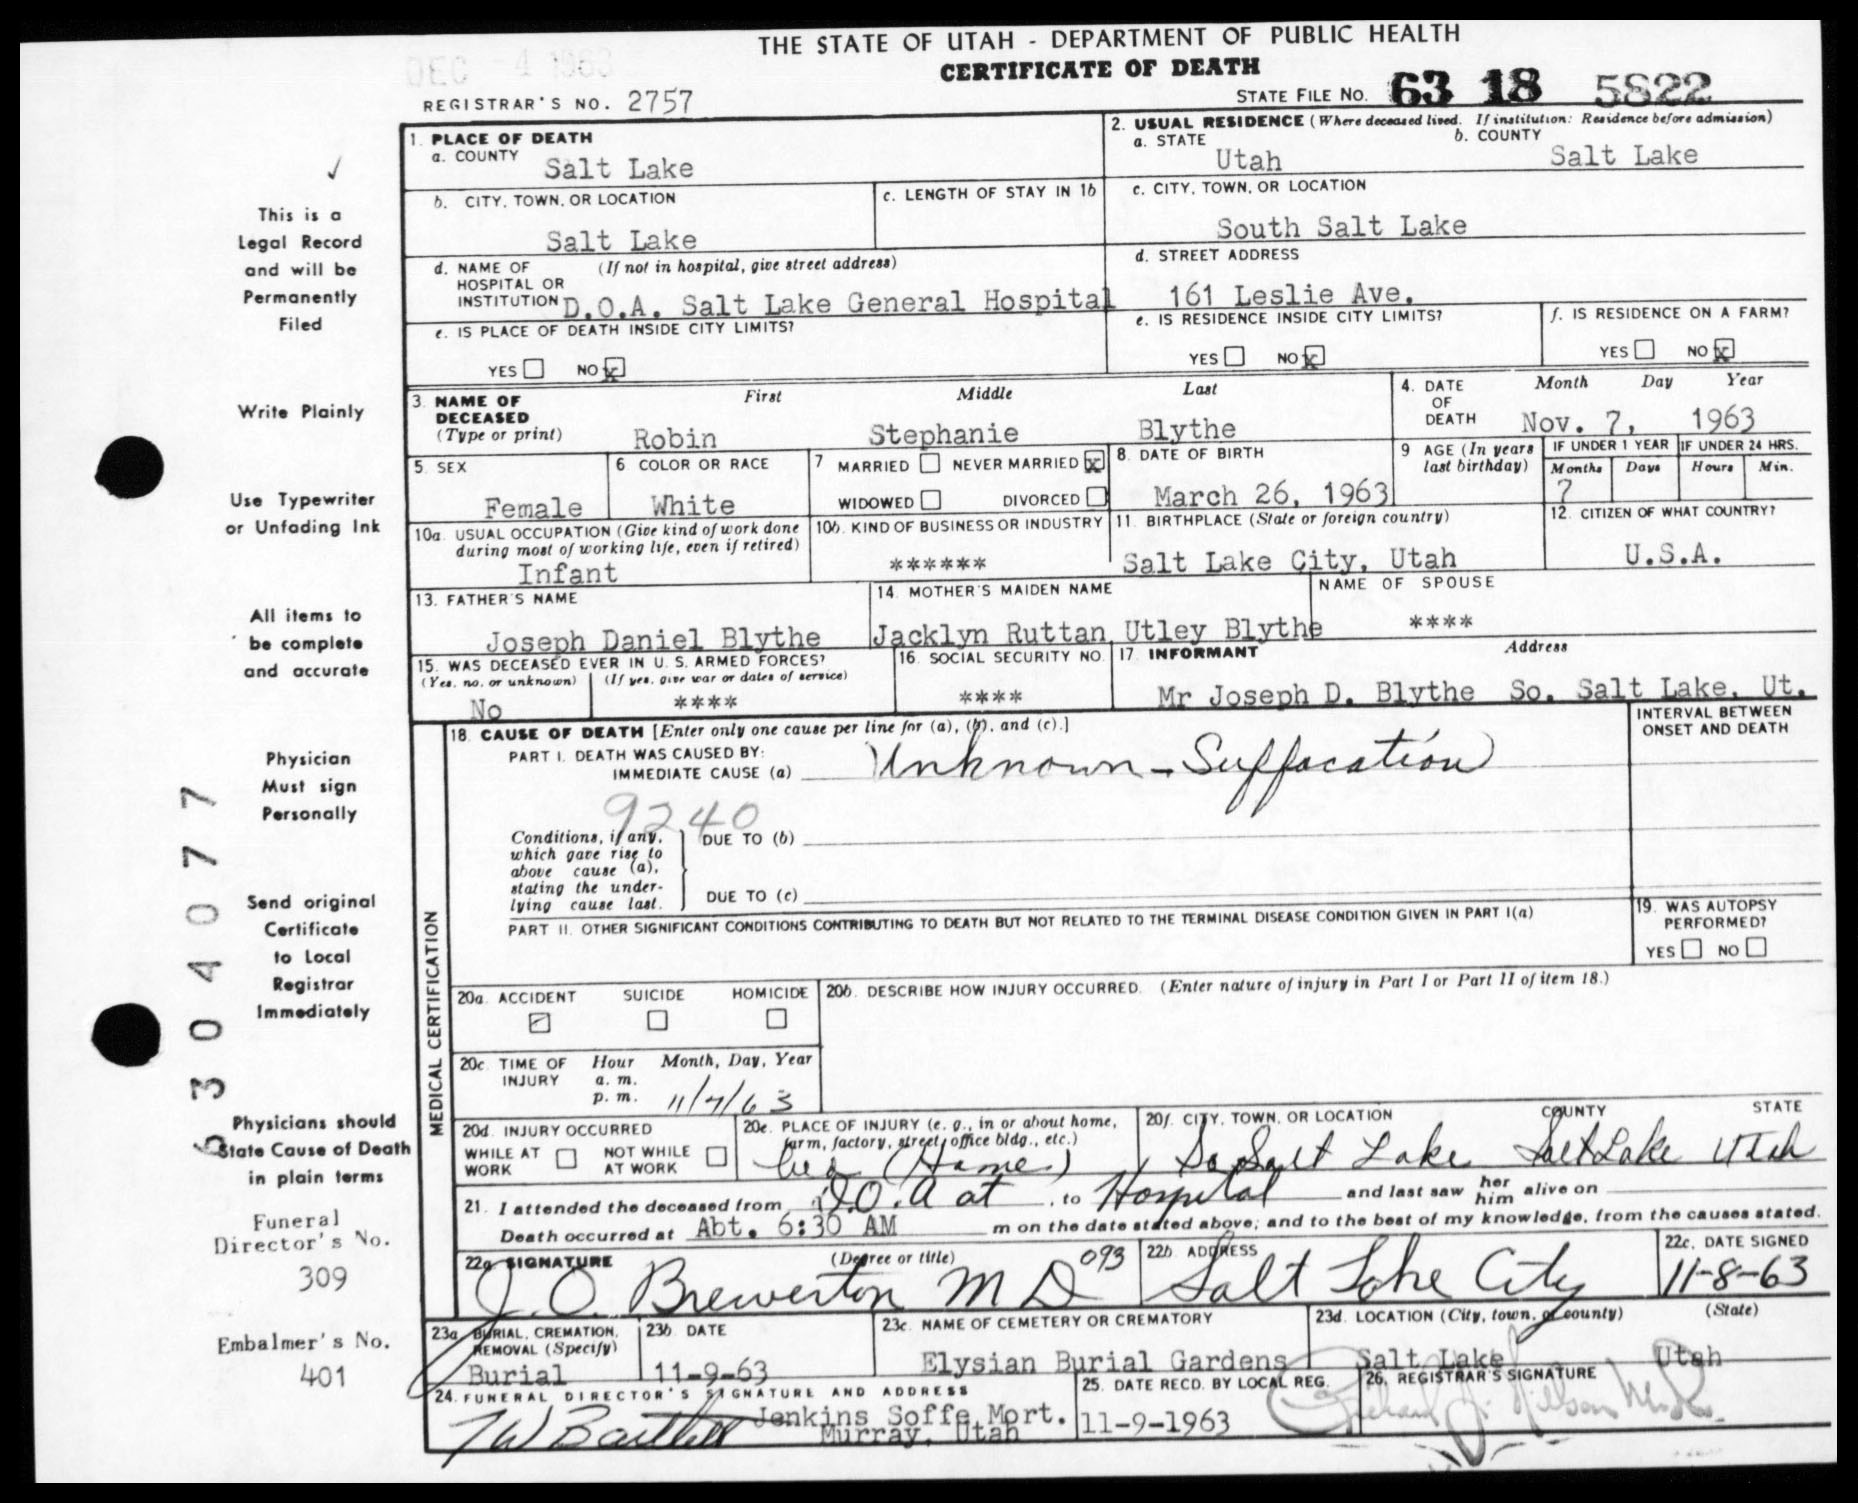 DEC - 4 1963
THE STATE OF UTAH - DEPARTMENT OF PUBLIC HEALTH
CERTIFICATE OF DEATH
REGISTRAR'S NO. 2757
STATE FILE NO. 63 18 5822
1. PLACE OF DEATH
a. COUNTY Salt Lake
2. USUAL RESIDENCE (Where deceased lived. If institution: Residence before admission)
a. STATE Utah b. COUNTY Salt Lake
b. CITY, TOWN, OR LOCATION Salt Lake
c. LENGTH OF STAY IN 1b
c. CITY, TOWN, OR LOCATION South Salt Lake
d. NAME OF HOSPITAL OR INSTITUTION (If not in hospital, give street address)
D.O.A. Salt Lake General Hospital
d. STREET ADDRESS
161 Leslie Ave.
e. IS PLACE OF DEATH INSIDE CITY LIMITS?
YES NO x
e. IS RESIDENCE INSIDE CITY LIMITS?
YES NO x
f. IS RESIDENCE ON A FARM?
YES NO x
3. NAME OF DECEASED (Type or print)
First Middle Last
Robin Stephanie Blythe
4. DATE OF DEATH Month Day Year
Nov. 7, 1963
5. SEX Female
6 COLOR OR RACE White
7 MARRIED NEVER MARRIED x
WIDOWED DIVORCED
8. DATE OF BIRTH
March 26, 1963
9 AGE (In years last birthday)
IF UNDER 1 YEAR IF UNDER 24 HRS.
Months Days Hours Min.
7
10a. USUAL OCCUPATION (Give kind of work done during most of working life, even if retired)
Infant
10b. KIND OF BUSINESS OR INDUSTRY
******
11. BIRTHPLACE (State or foreign country)
Salt Lake City, Utah
12. CITIZEN OF WHAT COUNTRY?
U.S.A.
13. FATHER'S NAME
Joseph Daniel Blythe
14. MOTHER'S MAIDEN NAME
Jacklyn Ruttan Utley Blythe
NAME OF SPOUSE
****
15. WAS DECEASED EVER IN U. S. ARMED FORCES?
(Yes, no, or unknown) (If yes, give war or dates of service)
No ****
16. SOCIAL SECURITY NO.
****
17. INFORMANT Address
Mr Joseph D. Blythe So. Salt Lake, Ut.
MEDICAL CERTIFICATION
18. CAUSE OF DEATH [Enter only one cause per line for (a), (b), and (c).]
INTERVAL BETWEEN ONSET AND DEATH
PART I. DEATH WAS CAUSED BY:
IMMEDIATE CAUSE (a) Unknown - Suffocation
9240
Conditions, if any, which gave rise to above cause (a), stating the underlying cause last.
DUE TO (b)
DUE TO (c)
PART II. OTHER SIGNIFICANT CONDITIONS CONTRIBUTING TO DEATH BUT NOT RELATED TO THE TERMINAL DISEASE CONDITION GIVEN IN PART I(a)
19. WAS AUTOPSY PERFORMED?
YES NO
20a. ACCIDENT SUICIDE HOMICIDE
20b. DESCRIBE HOW INJURY OCCURRED. (Enter nature of injury in Part I or Part II of item 18.)
20c. TIME OF INJURY Hour Month, Day, Year
a. m.
p. m. 11/7/63
20d. INJURY OCCURRED
WHILE AT WORK NOT WHILE AT WORK
20e. PLACE OF INJURY (e. g., in or about home, farm, factory, street, office bldg., etc.)
(Home)
20f. CITY, TOWN, OR LOCATION COUNTY STATE
So Salt Lake Salt Lake Utah
21. I attended the deceased from D.O.A at, to Hospital and last saw her him alive on
Death occurred at Abt. 6:30 AM m on the date stated above; and to the best of my knowledge, from the causes stated.
22a SIGNATURE (Degree or title) 093
J. O. Brewerton M D
22b. ADDRESS
Salt Lake City
22c. DATE SIGNED
11-8-63
23a BURIAL, CREMATION, REMOVAL (Specify)
Burial
23b DATE
11-9-63
23c. NAME OF CEMETERY OR CREMATORY
Elysian Burial Gardens
23d. LOCATION (City, town, or county) (State)
Salt Lake Utah
24. FUNERAL DIRECTOR'S SIGNATURE AND ADDRESS
Jenkins Soffe Mort.
Murray, Utah
25. DATE RECD. BY LOCAL REG.
11-9-1963
26. REGISTRAR'S SIGNATURE
This is a
Legal Record
and will be
Permanently
Filed
Write Plainly
Use Typewriter
or Unfading Ink
All items to
be complete
and accurate
Physician
Must sign
Personally
Send original
Certificate
to Local
Registrar
Immediately
Physicians should
State Cause of Death
in plain terms
Funeral
Director's No.
309
Embalmer's No.
401